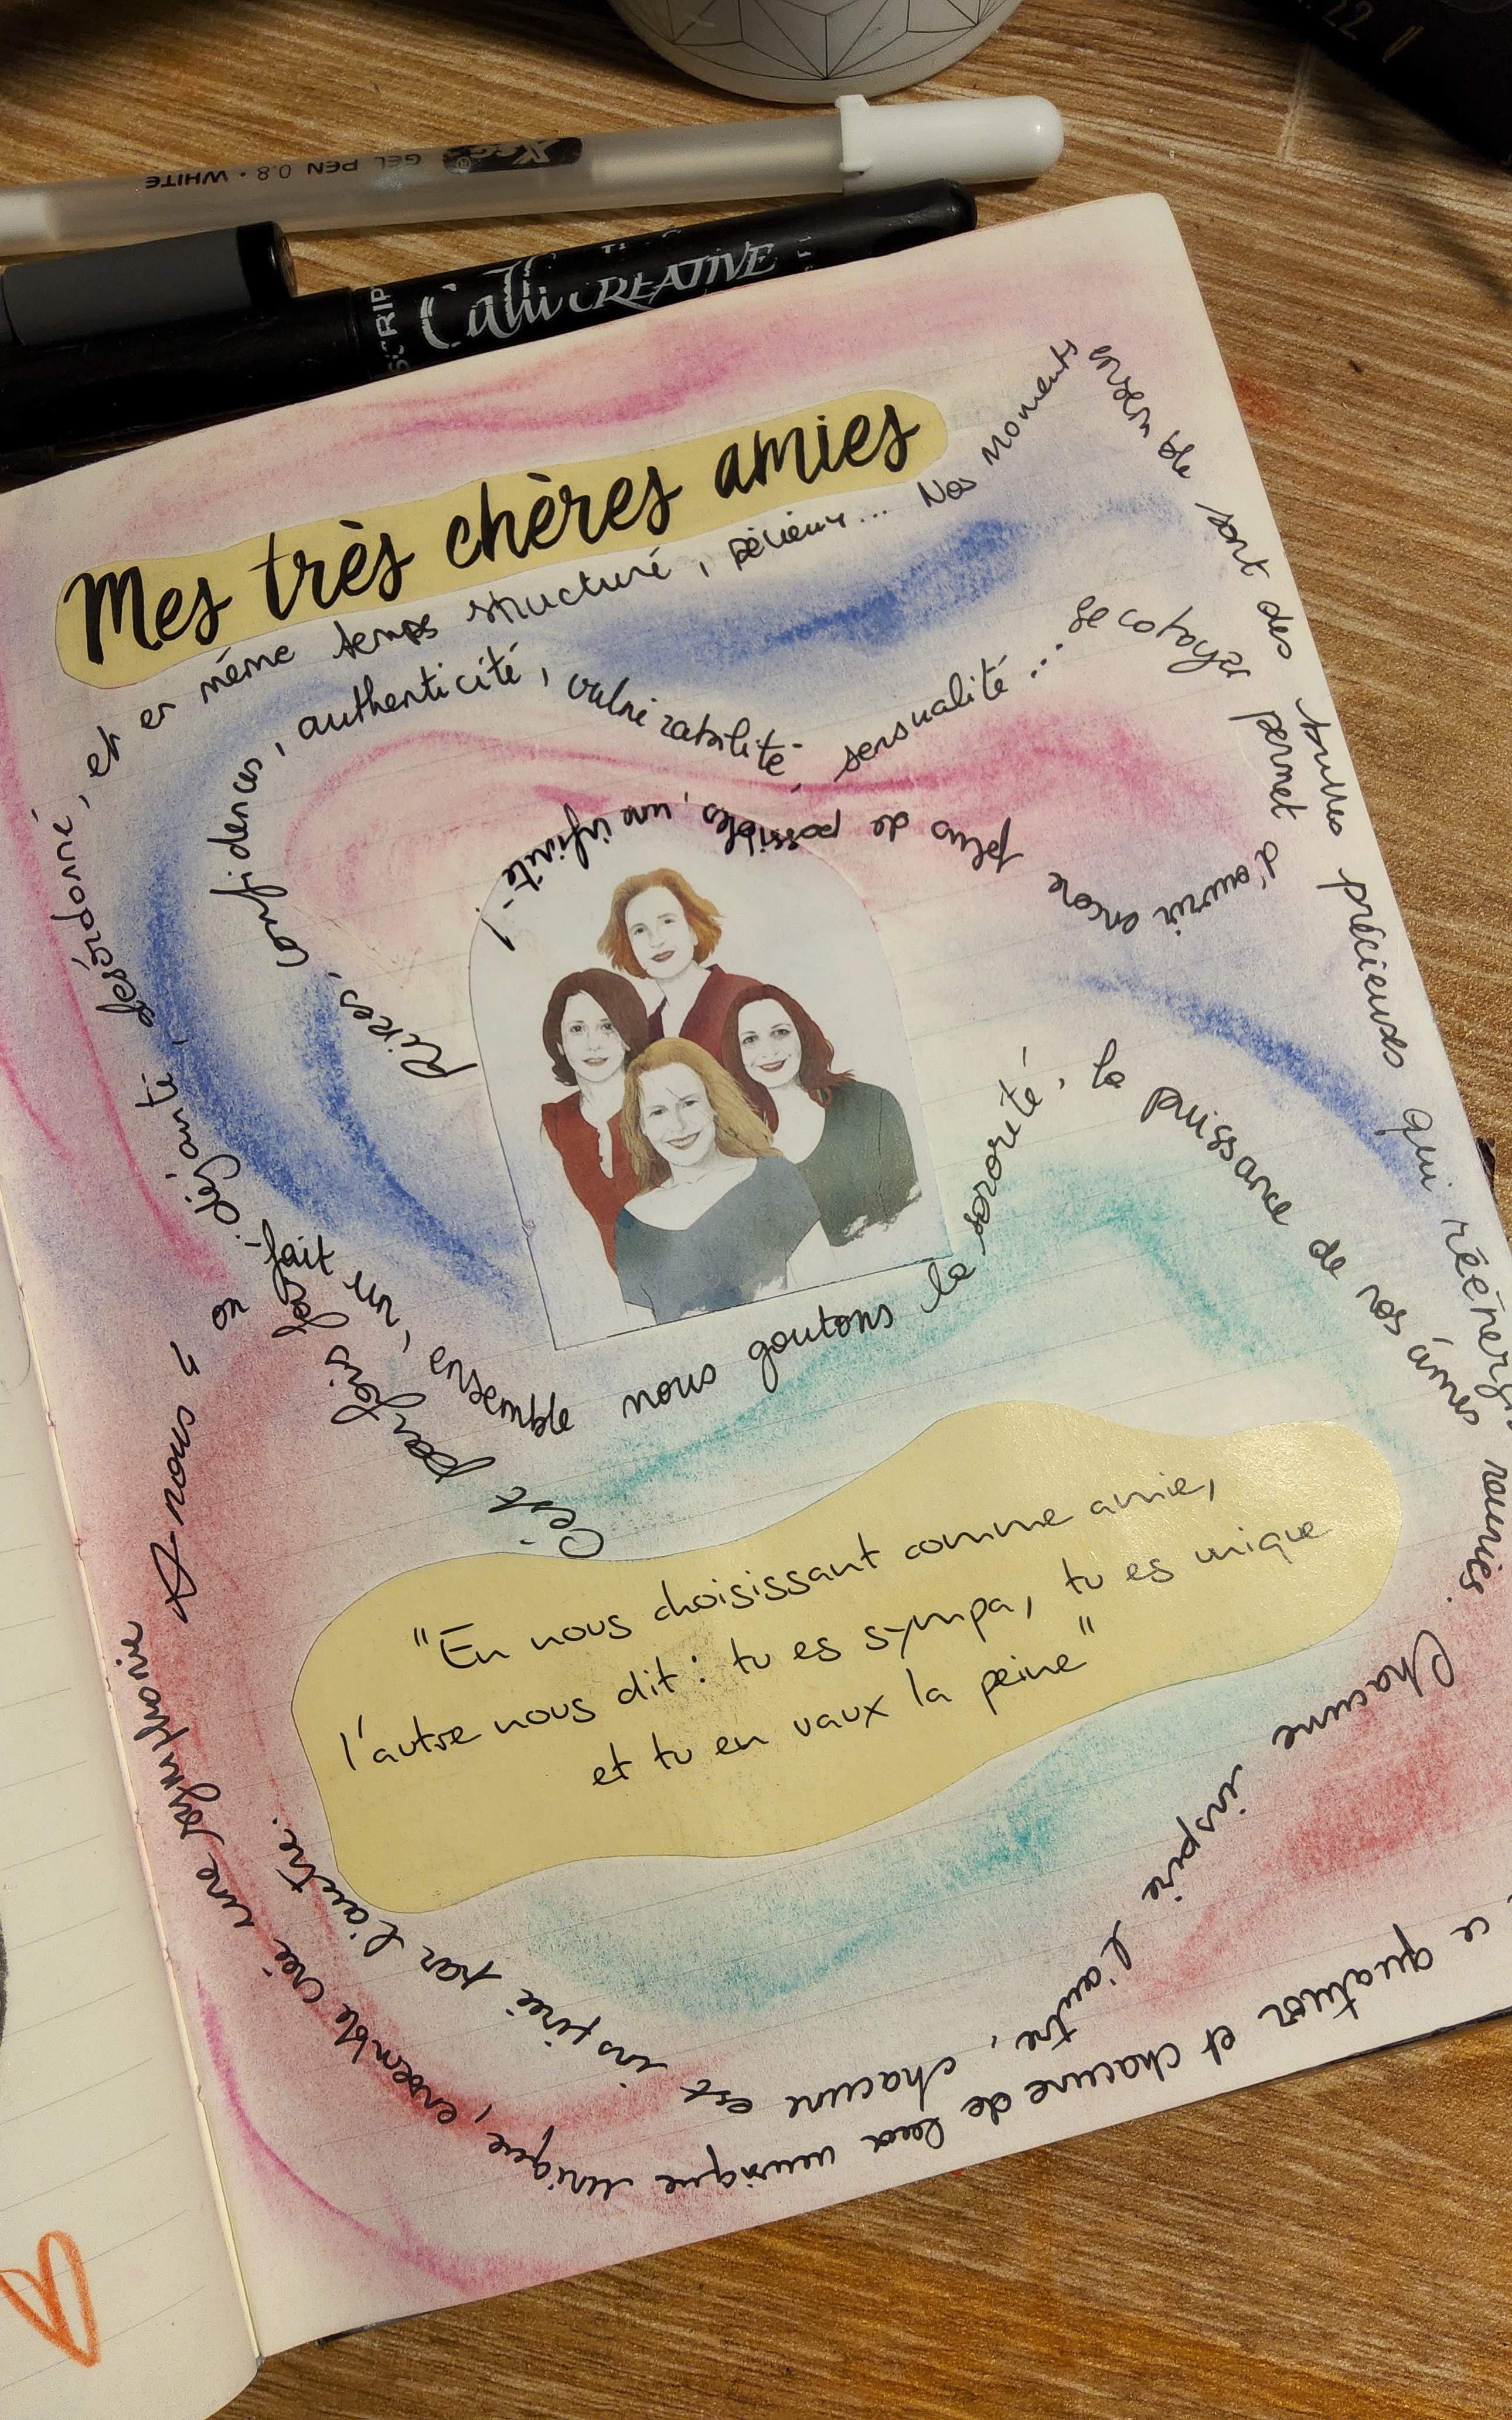 22
GEL PEN 0.8 • WHITE
Calli CREATIVE
Mes très chères amies
C'est parfois fou, déjanté, désordonné, et en même temps structuré, sérieux... Nos moments ensemble sont des bulles précieuses qui
Rires, confidences, authenticité, vulnérabilité, sensualité... se cotoyer permet d'ouvrir encore plus de possibles, une infinité !
A nous 4 on fait un, ensemble nous goutons la sororité, la puissance de nos âmes réunies.
"En nous choisissant comme amie,
l'autre nous dit : tu es sympa, tu es unique
et tu en vaux la peine"
Chacune inspire l'autre, chacune est inspiré par l'autre.
ce quatuor et chacune de unique, ensemble crée une symphonie